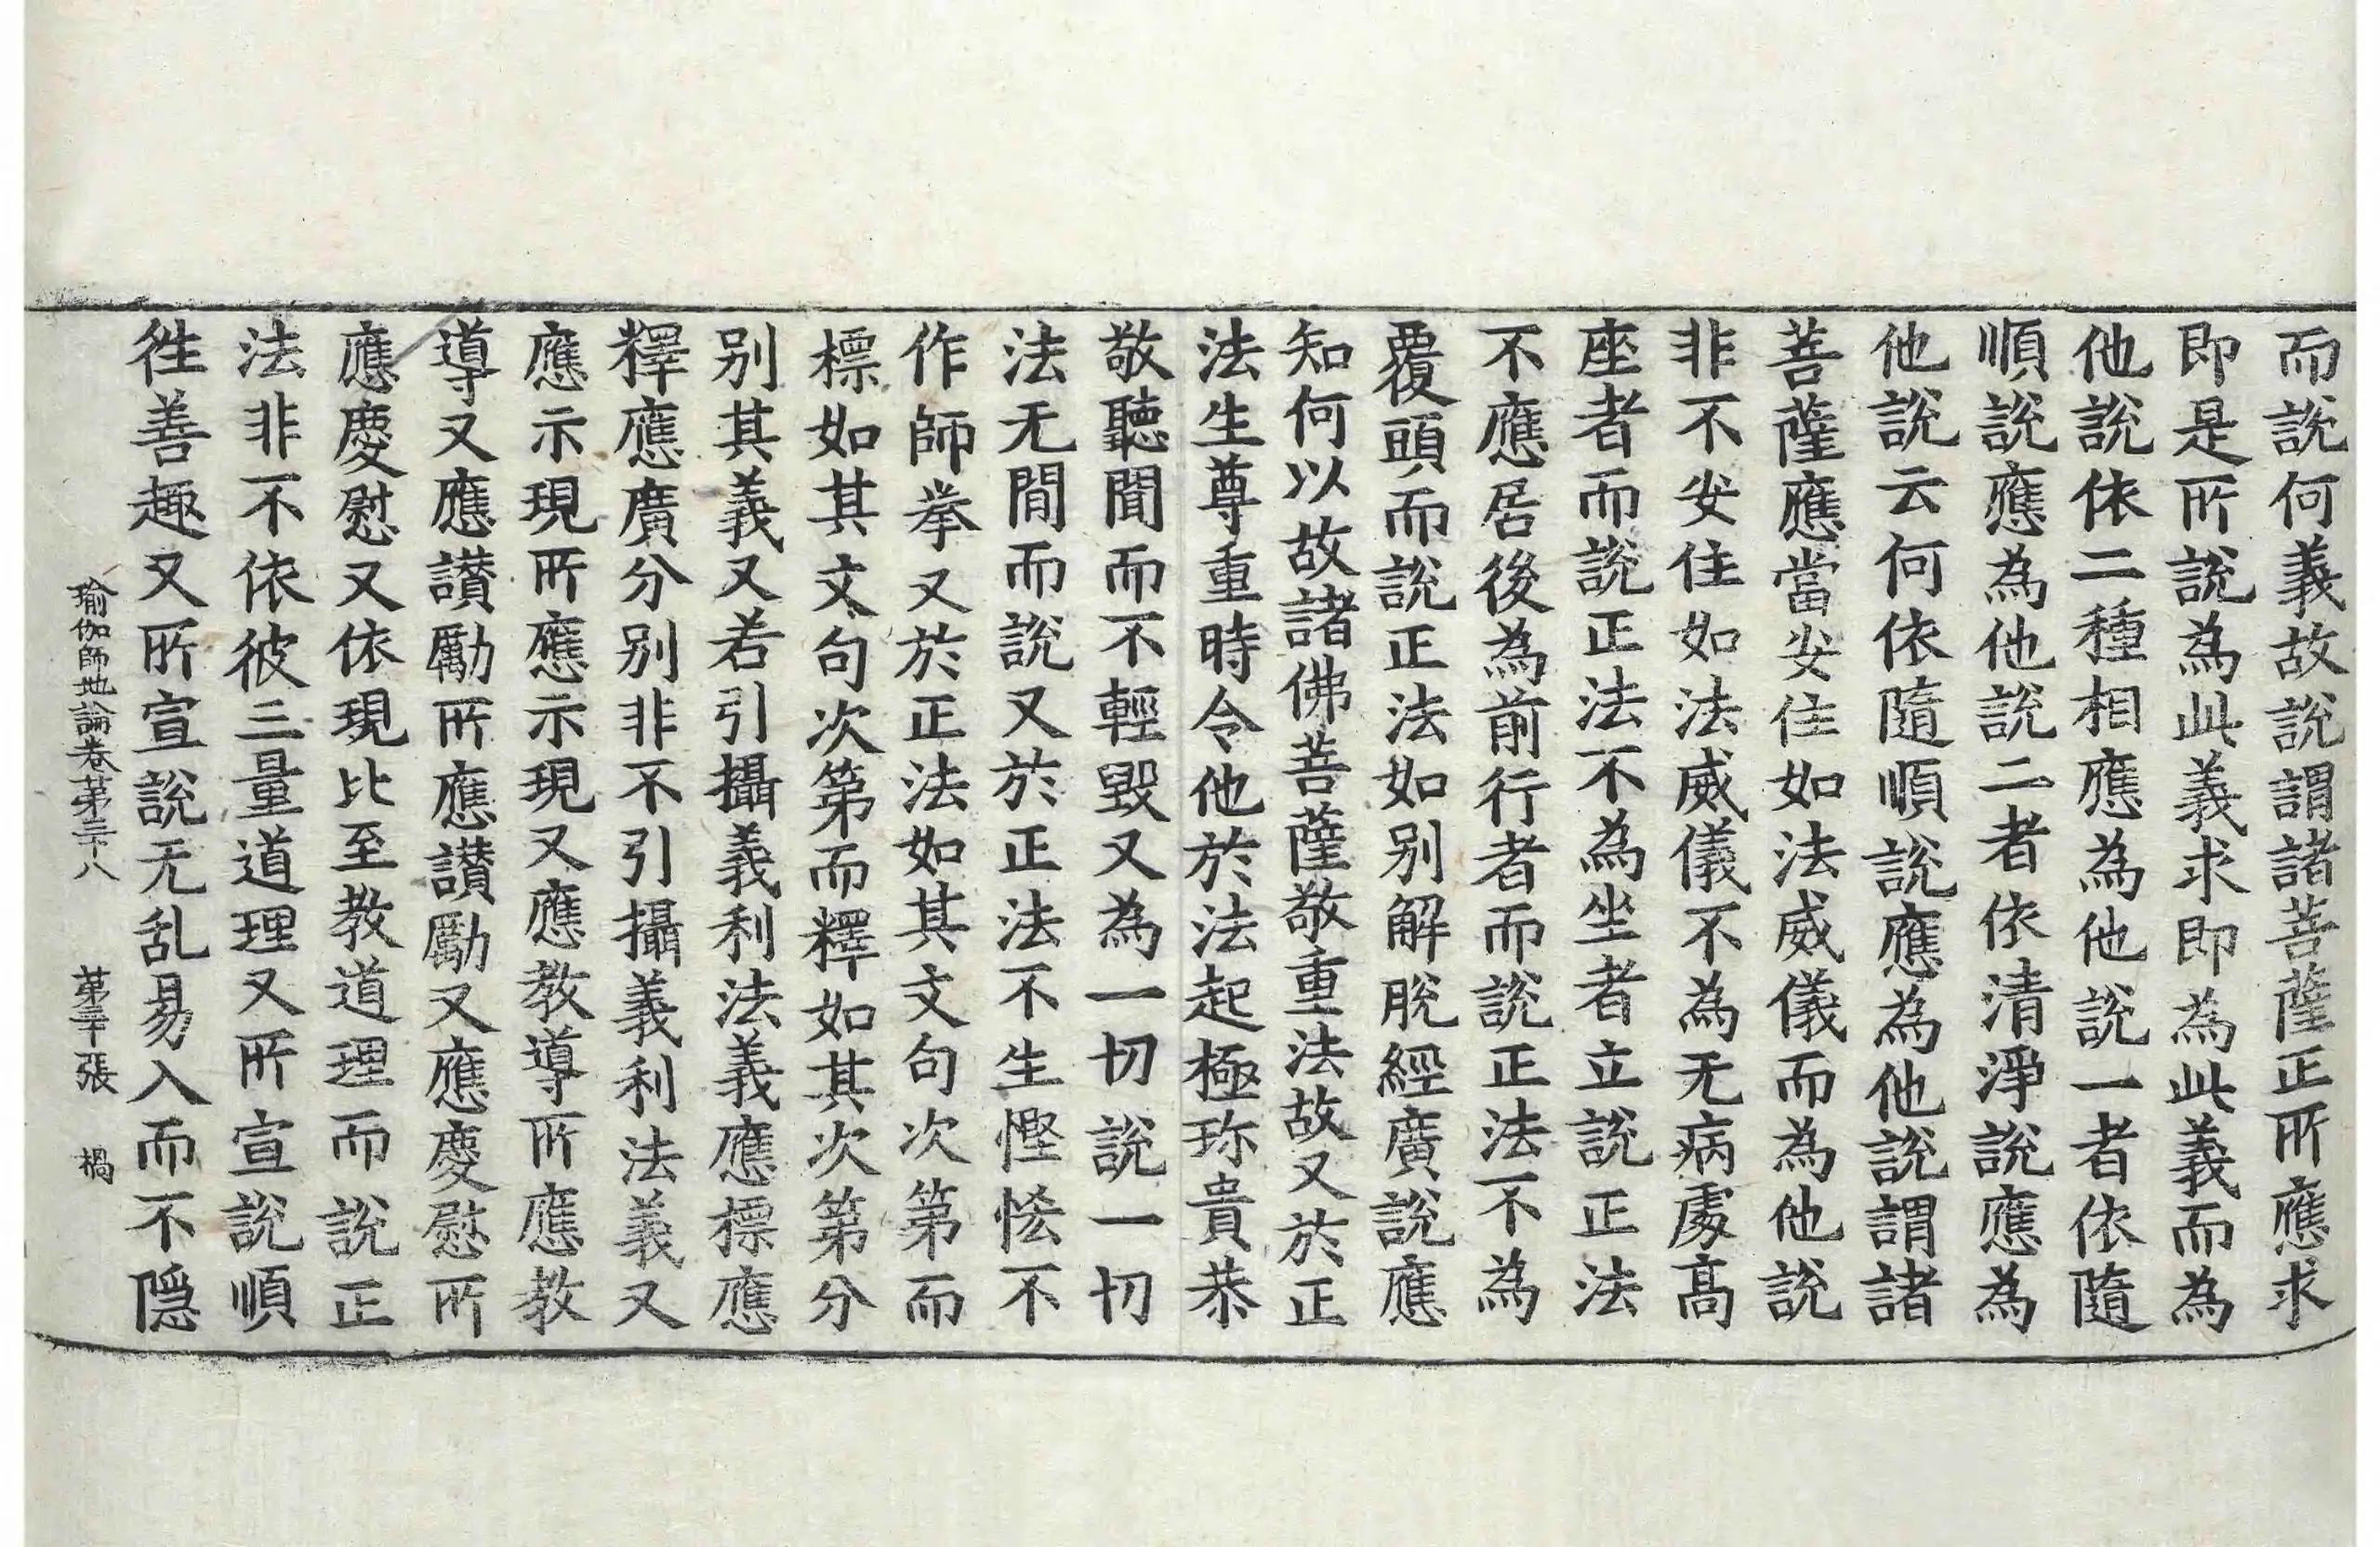 而說何義故說謂諸菩薩正所應求
即是所說為此義求即為此義而為
他說依二種相應為他說一者依隨
順說應為他說二者依清淨說應為
他說云何依隨順說應為他說謂諸
菩薩應當安住如法威儀而為他說
非不安住如法威儀不為无病處高
座者而說正法不為坐者立說正法
不應居後為前行者而說正法不為
覆頭而說正法如別解脫經廣說應
知何以故諸佛菩薩敬重法故又於正
法生尊重時令他於法起極珎貴恭
敬聽聞而不輕毀又為一切說一切
法无間而說又於正法不生慳悋不
作師捲又於正法如其文句次第而
標如其文句次第而釋如其次第分
別其義又若引攝義利法義應標應
釋應廣分別非不引攝義利法義又
應示現所應示現又應教導所應教
導又應讃勵所應讃勵又應慶慰所
應慶慰又依現比至教道理而說正
法非不依彼三量道理又所宣說順
徃善趣又所宣說无乱易入而不隱
瑜伽師地論卷第三十八 第二十張 禍